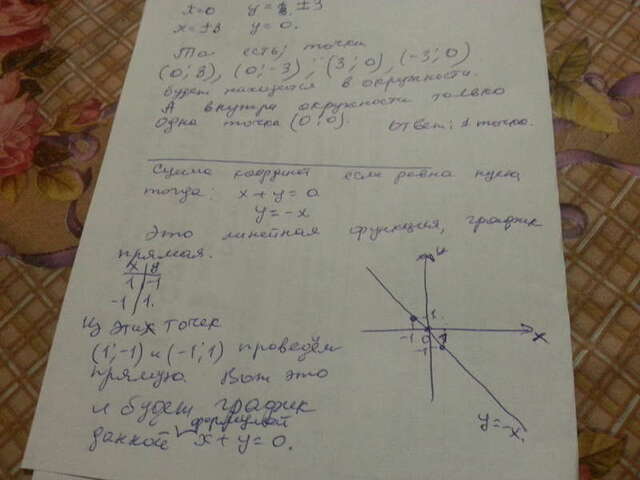 x=0   y=±3
x=±3   y=0.
То есть; точки
(0;3), (0;-3); (3;0), (-3;0)
будет находится в окружности.
А внутри окружности только
одна точка (0;0). Ответ: 1 точка.
Сумма координат если равна нулю
тогда: x+y=0
y=-x
Это линейная функция, график
прямая.
x | y
1 | -1
-1 | 1.
Из этих точек
(1;-1) и (-1;1) проведём
прямую. Вот это
и будет график
данной формулой x+y=0.
y
1.
-1 0 1 x
-1
y=-x.